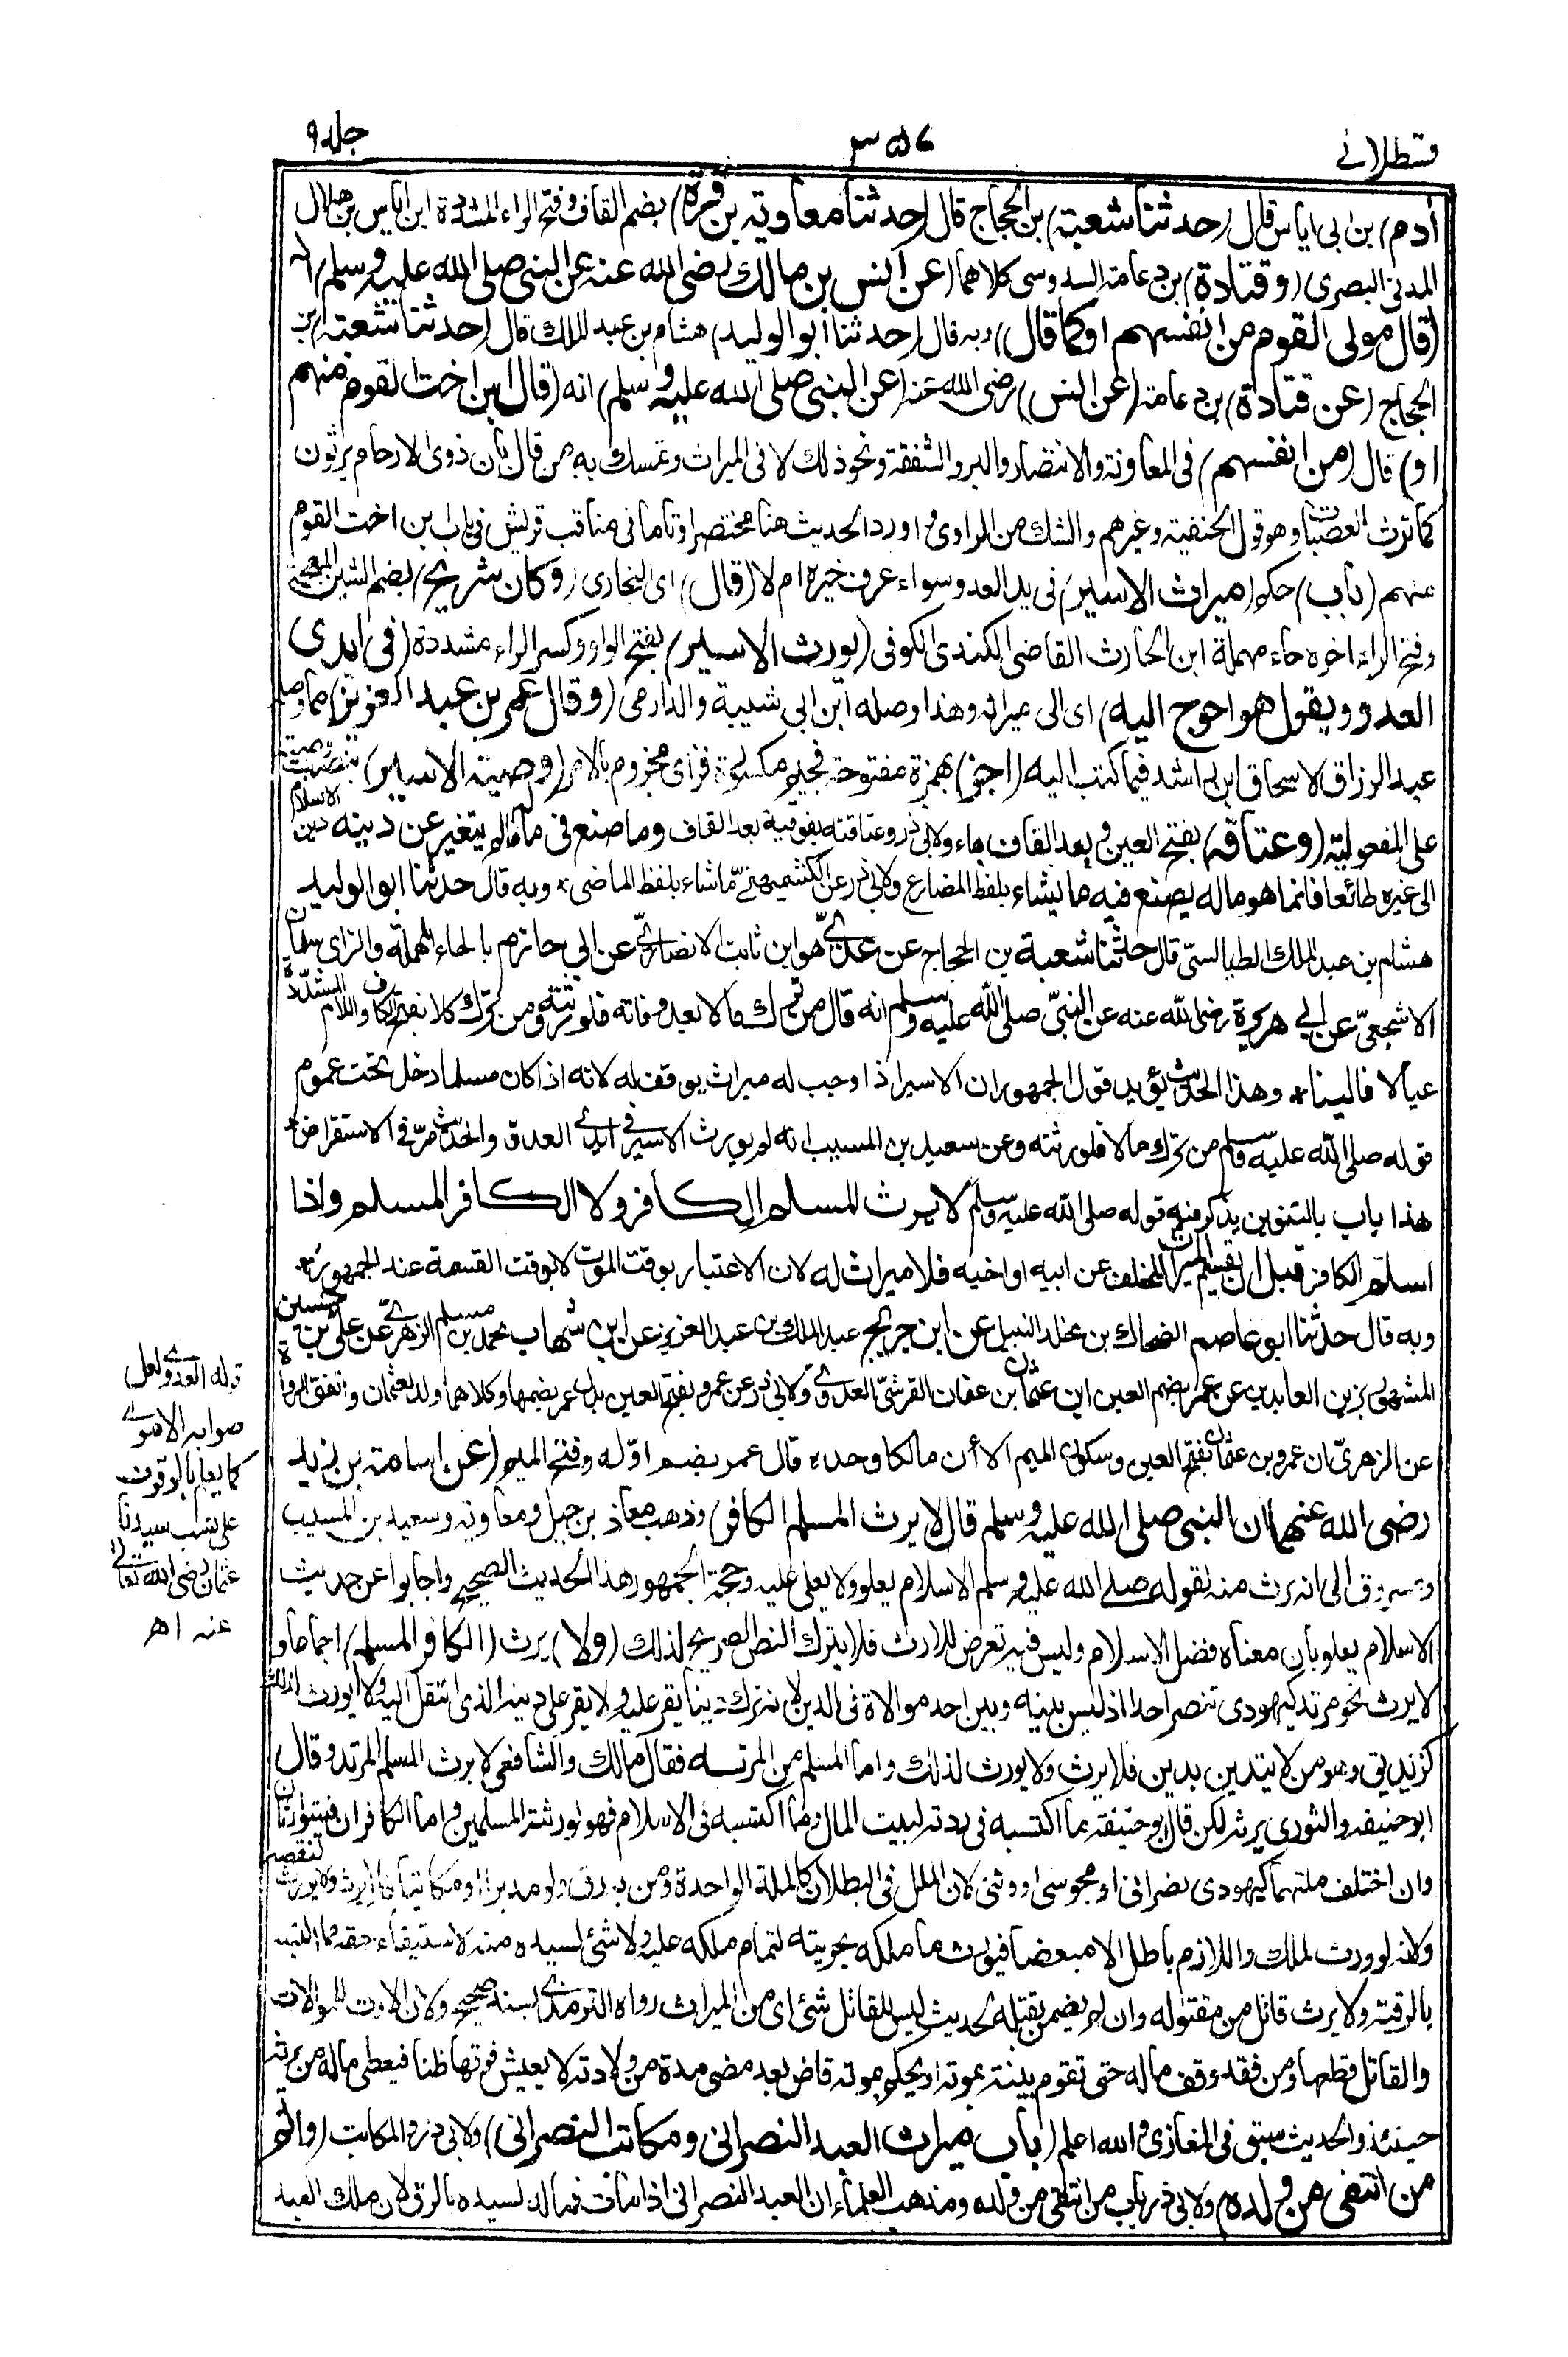 قسطلانے
٣٥٦
جلد ٩
آدم) بن ابى اياس قال (حدثنا شعبة) بن الحجاج قال (حدثنا معاوية بن قرة) بضم القاف وفتح الراء المشددة ابن اياس بن هلال
المدنى البصرى (وقتادة) بن دعامة السدوسى كلاهما (عن انس بن مالك رضى الله عنه عن النبى صلى الله عليه وسلم) انه
(قال مولى القوم من انفسهم اوكما قال) وبه قال (حدثنا ابو الوليد) هشام بن عبد الملك قال (حدثنا شعبة) بن
الحجاج (عن قتادة) بن دعامة (عن انس) رضى الله عنه (عن النبى صلى الله عليه وسلم) انه (قال ابن اخت القوم منهم
او) قال (من انفسهم) فى المعاونة والانتصار والبر والشفقة ونحو ذلك لا فى الميراث وتمسك به من قال بان ذوى الارحام يرثون
كما ترث العصبات وهو قول الحنفية وغيرهم والشك من الراوى و اورد الحديث هنا مختصرا وتاما فى مناقب قريش فى باب ابن اخت القوم
منهم (باب) حكم (ميراث الاسير) فى يد العدو سواء عرف خبره ام لا (قال) اى البخارى (وكان شريح) بضم الشين المعجمة
وفتح الراء اخره حاء مهملة ابن الحارث القاضى الكندى الكوفى (يورث الاسير) بفتح الواو وكسر الراء مشددة (فى ايدى
العدو ويقول هو احوج اليه) اى الى ميراثه وهذا وصله ابن ابى شيبة والدارمى (وقال عمر بن عبد العزيز) مما وصله
عبد الرزاق لاسحاق ابن راشد فيما كتب اليه (اجز) بهمزة مفتوحة فجيم مكسورة فزاى مجزوم بالامر (وصية الاسير) بنصب وصية
على المفعولية (وعتاقه) بفتح العين و بعد القاف هاء ولابى ذر وعتاقته بفوقية بعد القاف وما صنع فى ماله مالم يتغير عن دينه دين الاسلام
الى غيره طائعا فانما هو ماله يصنع فيه ما يشاء بلفظ المضارع ولابى ذر عن الكشميهنى ما شاء بلفظ الماضى * وبه قال حدثنا ابو الوليد
هشام بن عبد الملك الطيالسى قال حدثنا شعبة بن الحجاج عن عدى هو ابن ثابت الانصارى عن ابى حازم بالحاء المهملة والزاى سلمان
الاشجعى عن ابى هريرة رضى الله عنه عن النبى صلى الله عليه وسلم انه قال من ترك مالا بعد وفاته فلورثته ومن ترك كلا بفتح الكاف واللام المشددة
عيالا فالينا * وهذا الحديث يؤيد قول الجمهور ان الاسير اذا وجب له ميراث يوقف له لانه اذا كان مسلما دخل تحت عموم
قوله صلى الله عليه وسلم من ترك مالا فلورثته وعن سعيد بن المسيب انه لم يورث الاسير فى ايدى العدو والحديث مر فى الاستقراض *
هذا باب بالتنوين يذكر فيه قوله صلى الله عليه وسلم لا يرث المسلم الكافر ولا الكافر المسلم واذا
اسلم الكافر قبل ان يقسم الميراث المخلف عن ابيه او اخيه فلا ميراث له لان الاعتبار بوقت الموت لا بوقت القسمة عند الجمهور *
وبه قال حدثنا ابو عاصم الضحاك بن مخلد النبيل عن ابن جريج عبد الملك بن عبد العزيز عن ابن شهاب محمد بن مسلم الزهرى عن على بن حسين
المشهور بزين العابدين عن عمر بضم العين ابن عثمان بن عفان القرشى العدوى ولابى ذر عن عمرو بفتح العين بدل عمر بضمها وكلاهما ولد لعثمان واتفق الرواة
عن الزهرى ان عمرو بن عثمان بفتح العين وسكون الميم الا أن مالكا وحده قال عمر بضم اوله وفتح الميم (عن اسامة بن زيد
رضى الله عنهما ان النبى صلى الله عليه وسلم قال لا يرث المسلم الكافر) وذهب معاذ بن جبل ومعاوية وسعيد بن المسيب
ومسروق الى انه يرث منه لقوله صلى الله عليه وسلم الاسلام يعلو ولا يعلى عليه وحجة الجمهور هذا الحديث الصحيح واجابوا عن حديث
الاسلام يعلو بان معناه فضل الاسلام وليس فيه تعرض للارث فلا يترك النص الصريح لذلك (ولا) يرث (الكافر المسلم) اجماعا و
لا يرث نحو مرتد كيهودى تنصر احدا اذ ليس بينه وبين احد موالاة فى الدين لانه ترك دينا يقر عليه ولا يقر على دينه الذى انتقل اليه ولا يورث لذلك
كزنديق وهو من لا يتدين بدين فلا يرث ولا يورث لذلك واما المسلم من المرتد فقال مالك والشافعى لا يرث المسلم المرتد وقال
ابو حنيفة والثورى يرثه لكن قال ابو حنيفة ما اكتسبه فى ردته لبيت المال وما اكتسبه فى الاسلام فهو لورثته المسلمين واما الكافران فيتوارثان
وان اختلف ملتهما كيهودى نصرانى او مجوسى او وثنى لان الملل فى البطلان كالملة الواحدة ومن به رق ولو مدبرا او مكاتبا لا يرث ولا يورث لنقصه
ولانه لو ورث لملك واللازم باطل الا مبعضا فيورث ما ملكه بحريته لتمام ملكه عليه ولا شئ لسيده منه لاستيفاء حقه مما اكتسبه
بالرقية ولا يرث قاتل من مقتوله وان لم يضمن بقتله لحديث ليس للقاتل شئ اى من الميراث رواه الترمذى بسند صحيح ولان الارث للموالات
والقاتل قطعها ومن فقد وقف ماله حتى تقوم بينة بموته او يحكم بموته قاض بعد مضى مدة من ولادته لا يعيش فوقها ظنا فيعطى ماله من يرثه
حينئذ والحديث سبق فى المغازى والله اعلم (باب ميراث العبد النصرانى ومكاتب النصرانى) ولابى ذر والمكاتب (واثم
من انتفى من ولده) ولابى ذر باب من انتفى من ولده ومذهب العلماء ان العبد النصرانى اذا مات فماله لسيده بالرق لان ملك العبد
قوله العدوى لعل
صوابه الاموى
كما يعلم بالوقوف
على نسب سيدنا
عثمان رضى الله تعالى
عنه اهـ